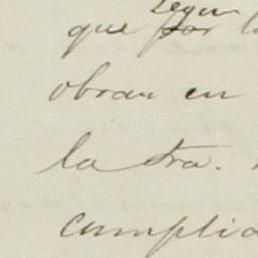 segun
que por l
obran en
la tra.
cumplid